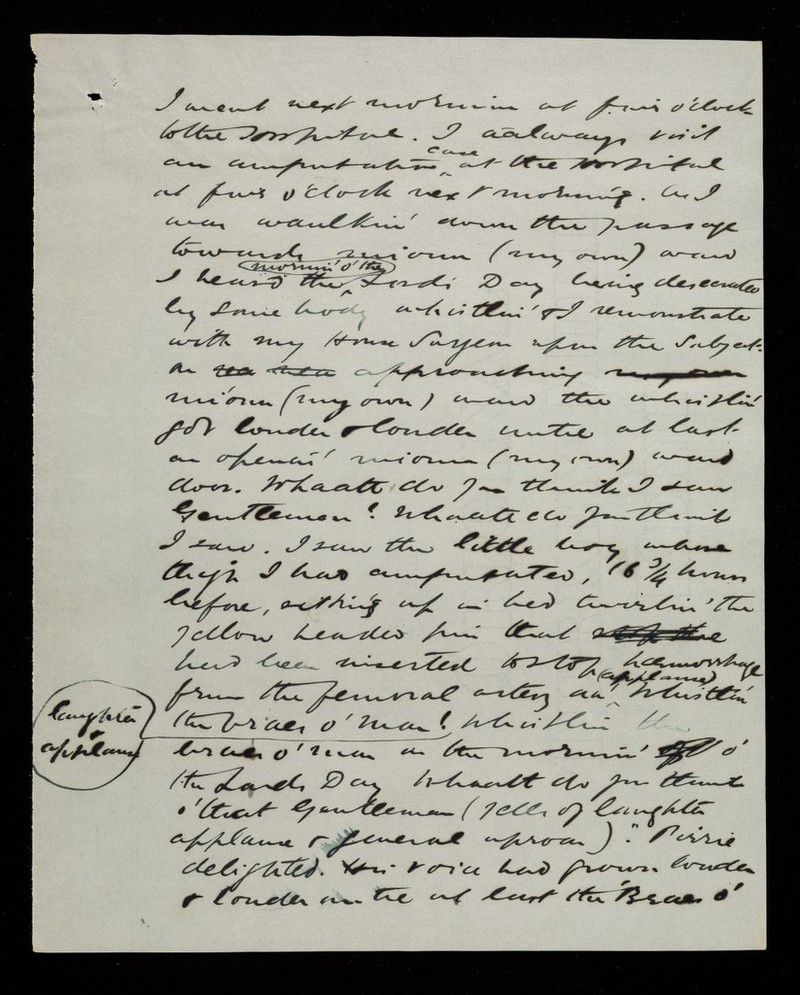 I went next mornin at five o'clock
to the Hospital. I aalways visit
an amputation case at the Hospital
at five o'clock next morning. As I
was waulkin' down the passage
towards mioun (my own) ward
mornin' o' the
I heard the Lords Day being desecrated
by some body whistlin' & I remonstrate
with my House Surgeon upon the Subject.
on approaching my own
mioun (my own) ward the whistlin'
got louder & louder until at last
on openin' mioun (my own) ward
door. Whaatt do you think I saw
Gentlemen? Whaatt do you think
I saw. I saw the little boy whose
thigh I had amputated, 16 3/4 hours
before, sitting up in bed twirlin' the
yellow headed pin that
had been inserted to stop hæmorrhage
(applause)
from the femoral artery an' whistlin
laughter & applause
the braes o' Mar! Whistlin the
braes o' mar on the mornin' o'
the Lords Day Whaatt do you think
o' that Gentlemen (yells of laughter
applause & general uproar)". Pirrie
delighted. His voice had grown louder
& louder until at last the 'Braes o'